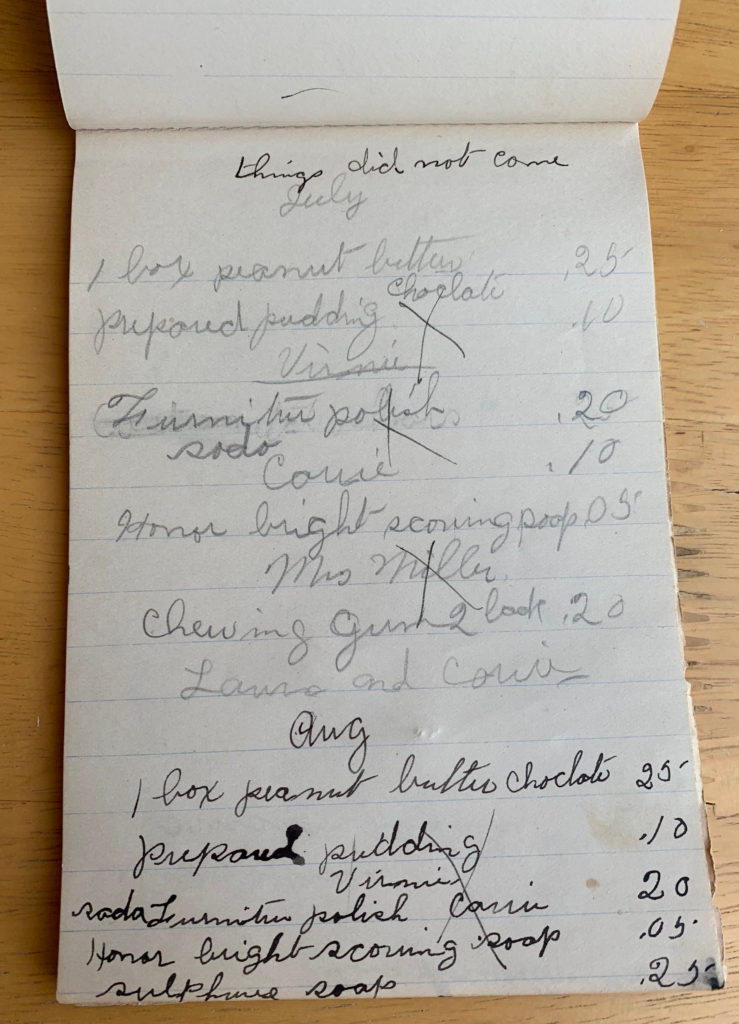 things did not come
July
1 box peanut butter .25
choclate
prepared pudding .10
Virnie
Furnitur polish .20
soda .10
Carrie
Honor bright scouring soap 05
Mrs Miller
Chewing Gum 2 .20
Laura and Carrie
Aug
1 box peanut butter choclate 25
prepared pudding .10
Virnie
soda Furnitur polish Carrie 20
Honor bright scouring soap .05
sulphure soap .25